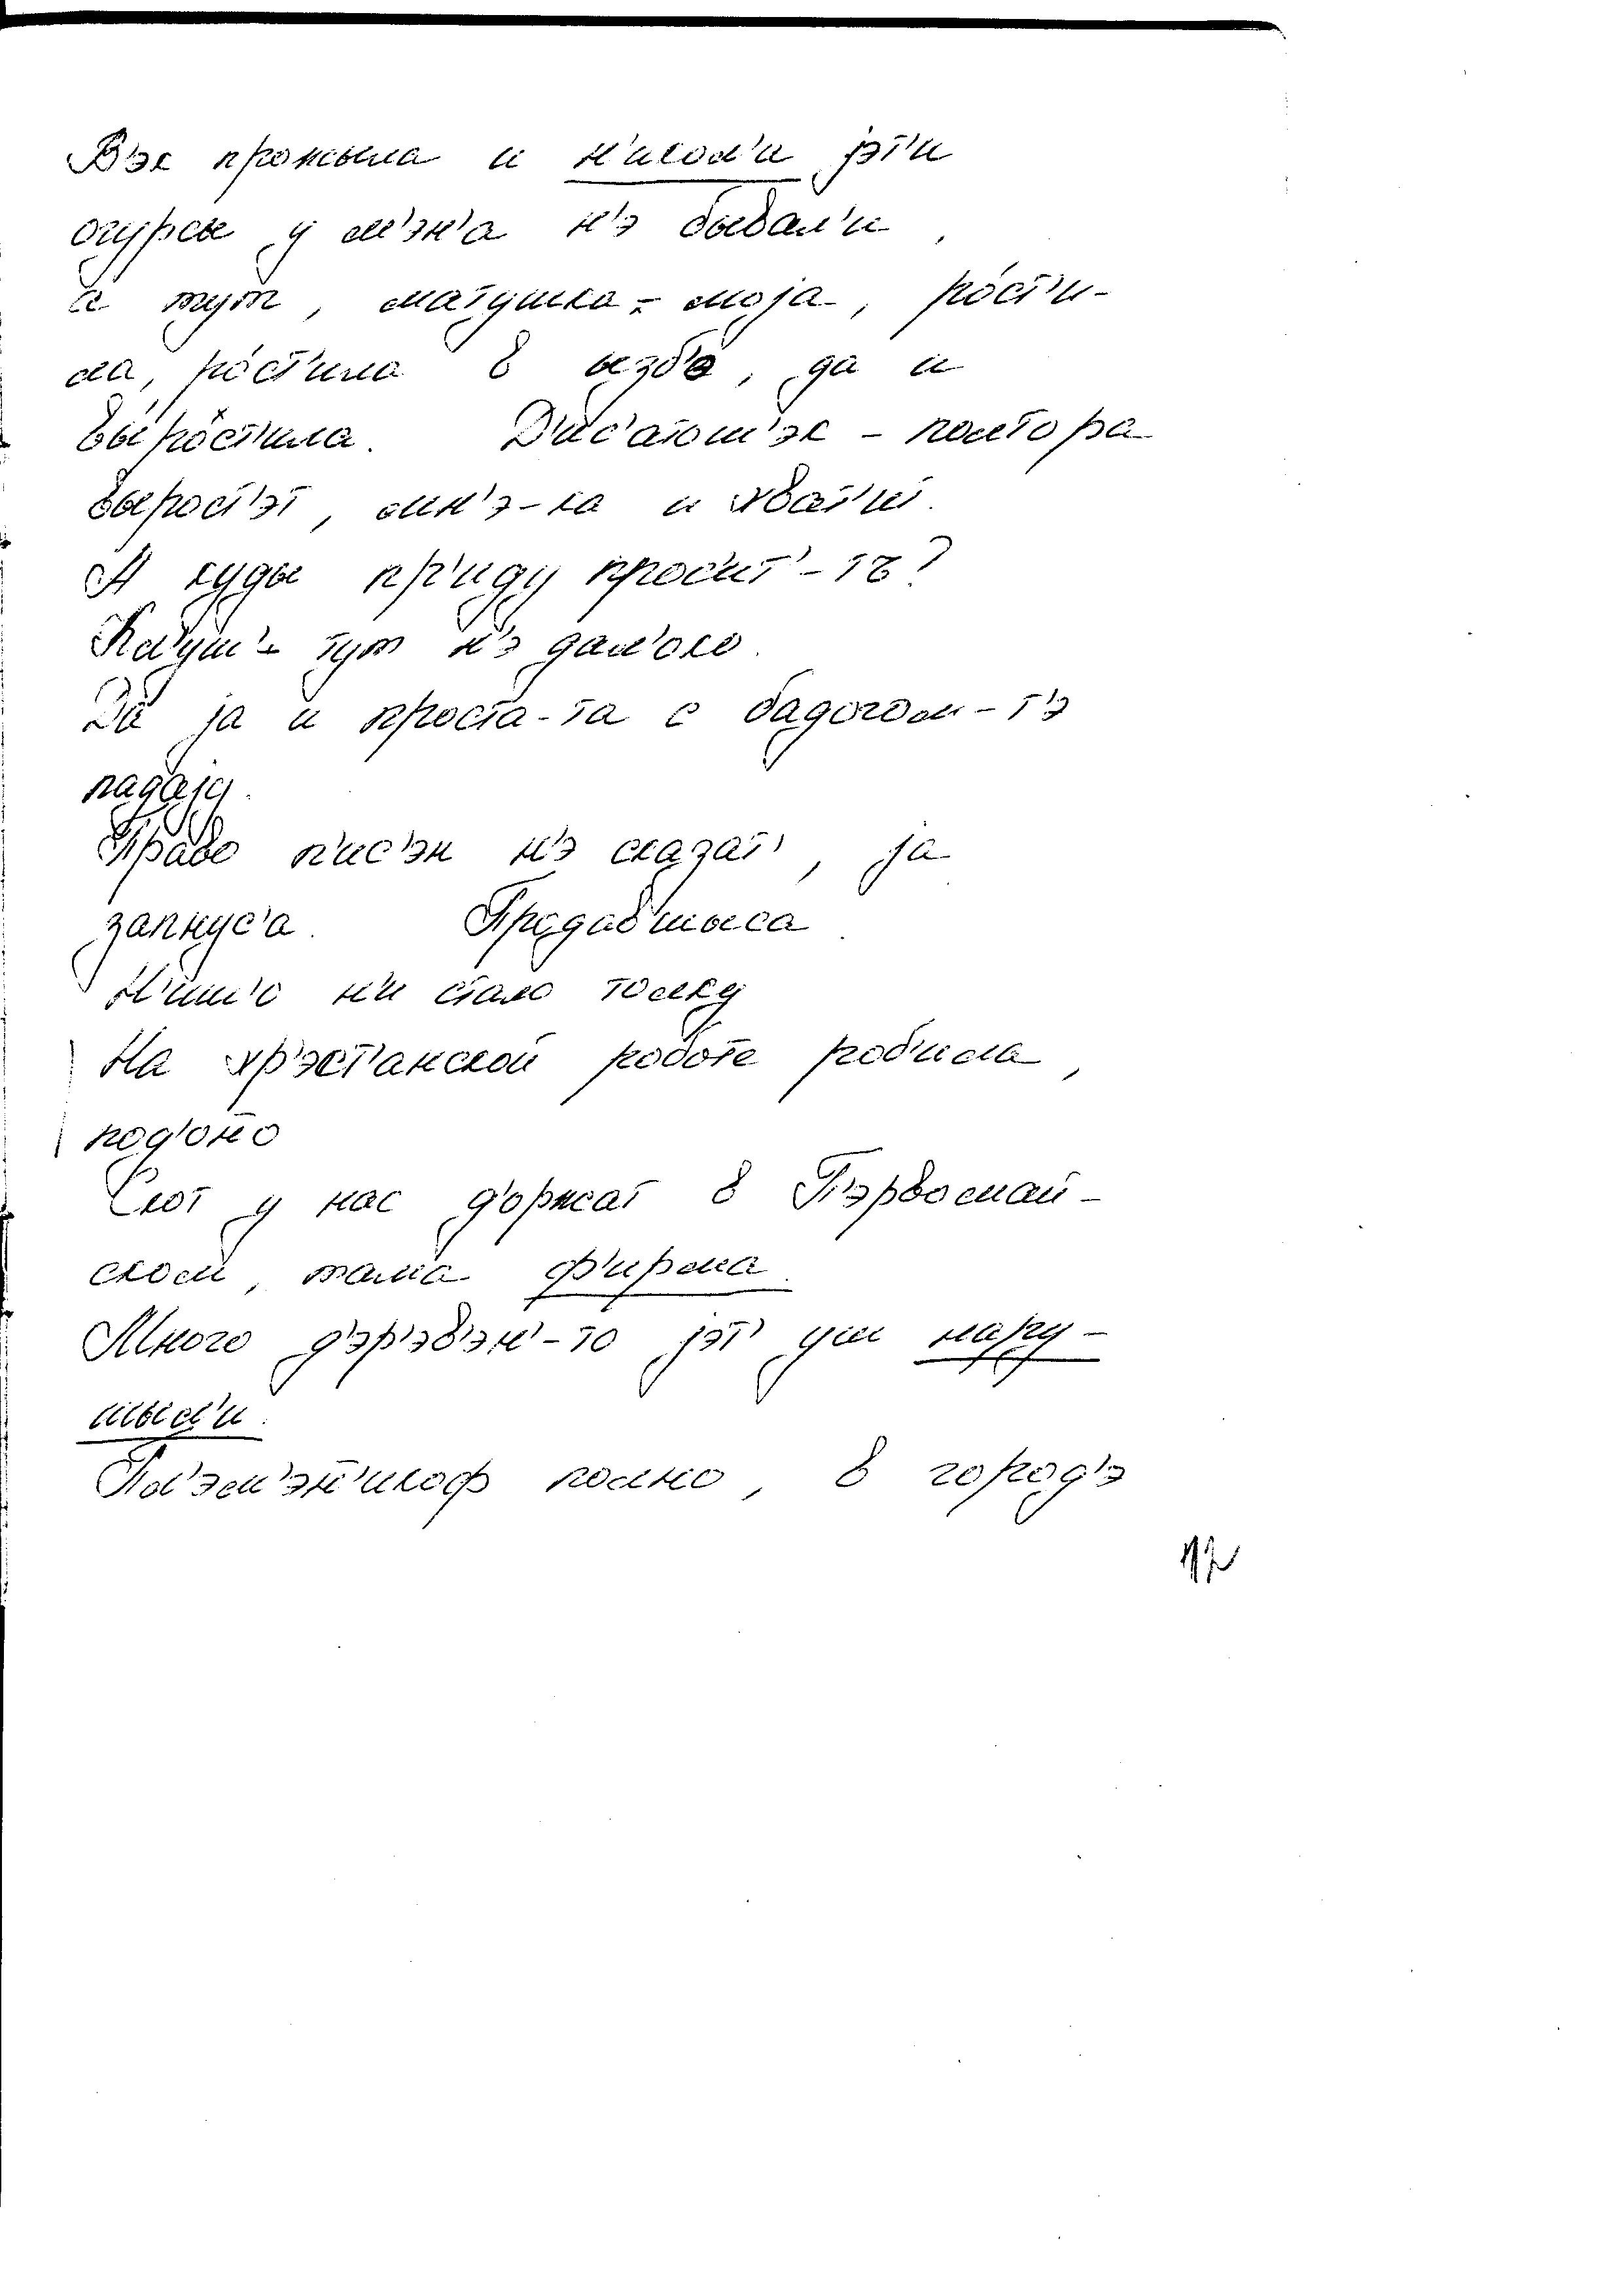 В'эк прожыла и н'икол'и јэт'и
огурсы у м'эн'а н'э бывал'и,
а тут, матушка-моја, рόст'и-
ла, рόст'ила в избэ, да и
вы́рост'ила. Д'ис'аточ'эк - полтора
вырост'эт, мн'э-ка и хват'ит.
А куды пр'иду просит'-то?
тут н'э дал'око.
Да ја и проста-та с бадогом-т'э
падају.
Право п'ис'эн н'э сказат', ја
запнус'а. Продавшыса.
Н'иш'о н'и стало толку
На хр'эст'анской роботе роб'ила,
под'оно
Скот у нас д'оржат в П'эрвомай-
ском, тама ф'ирма.
Много д'эр'эв'эн'-то јэт' уш нару-
шыл'и.
Пл'эм'эн'икоф полно, в город'э